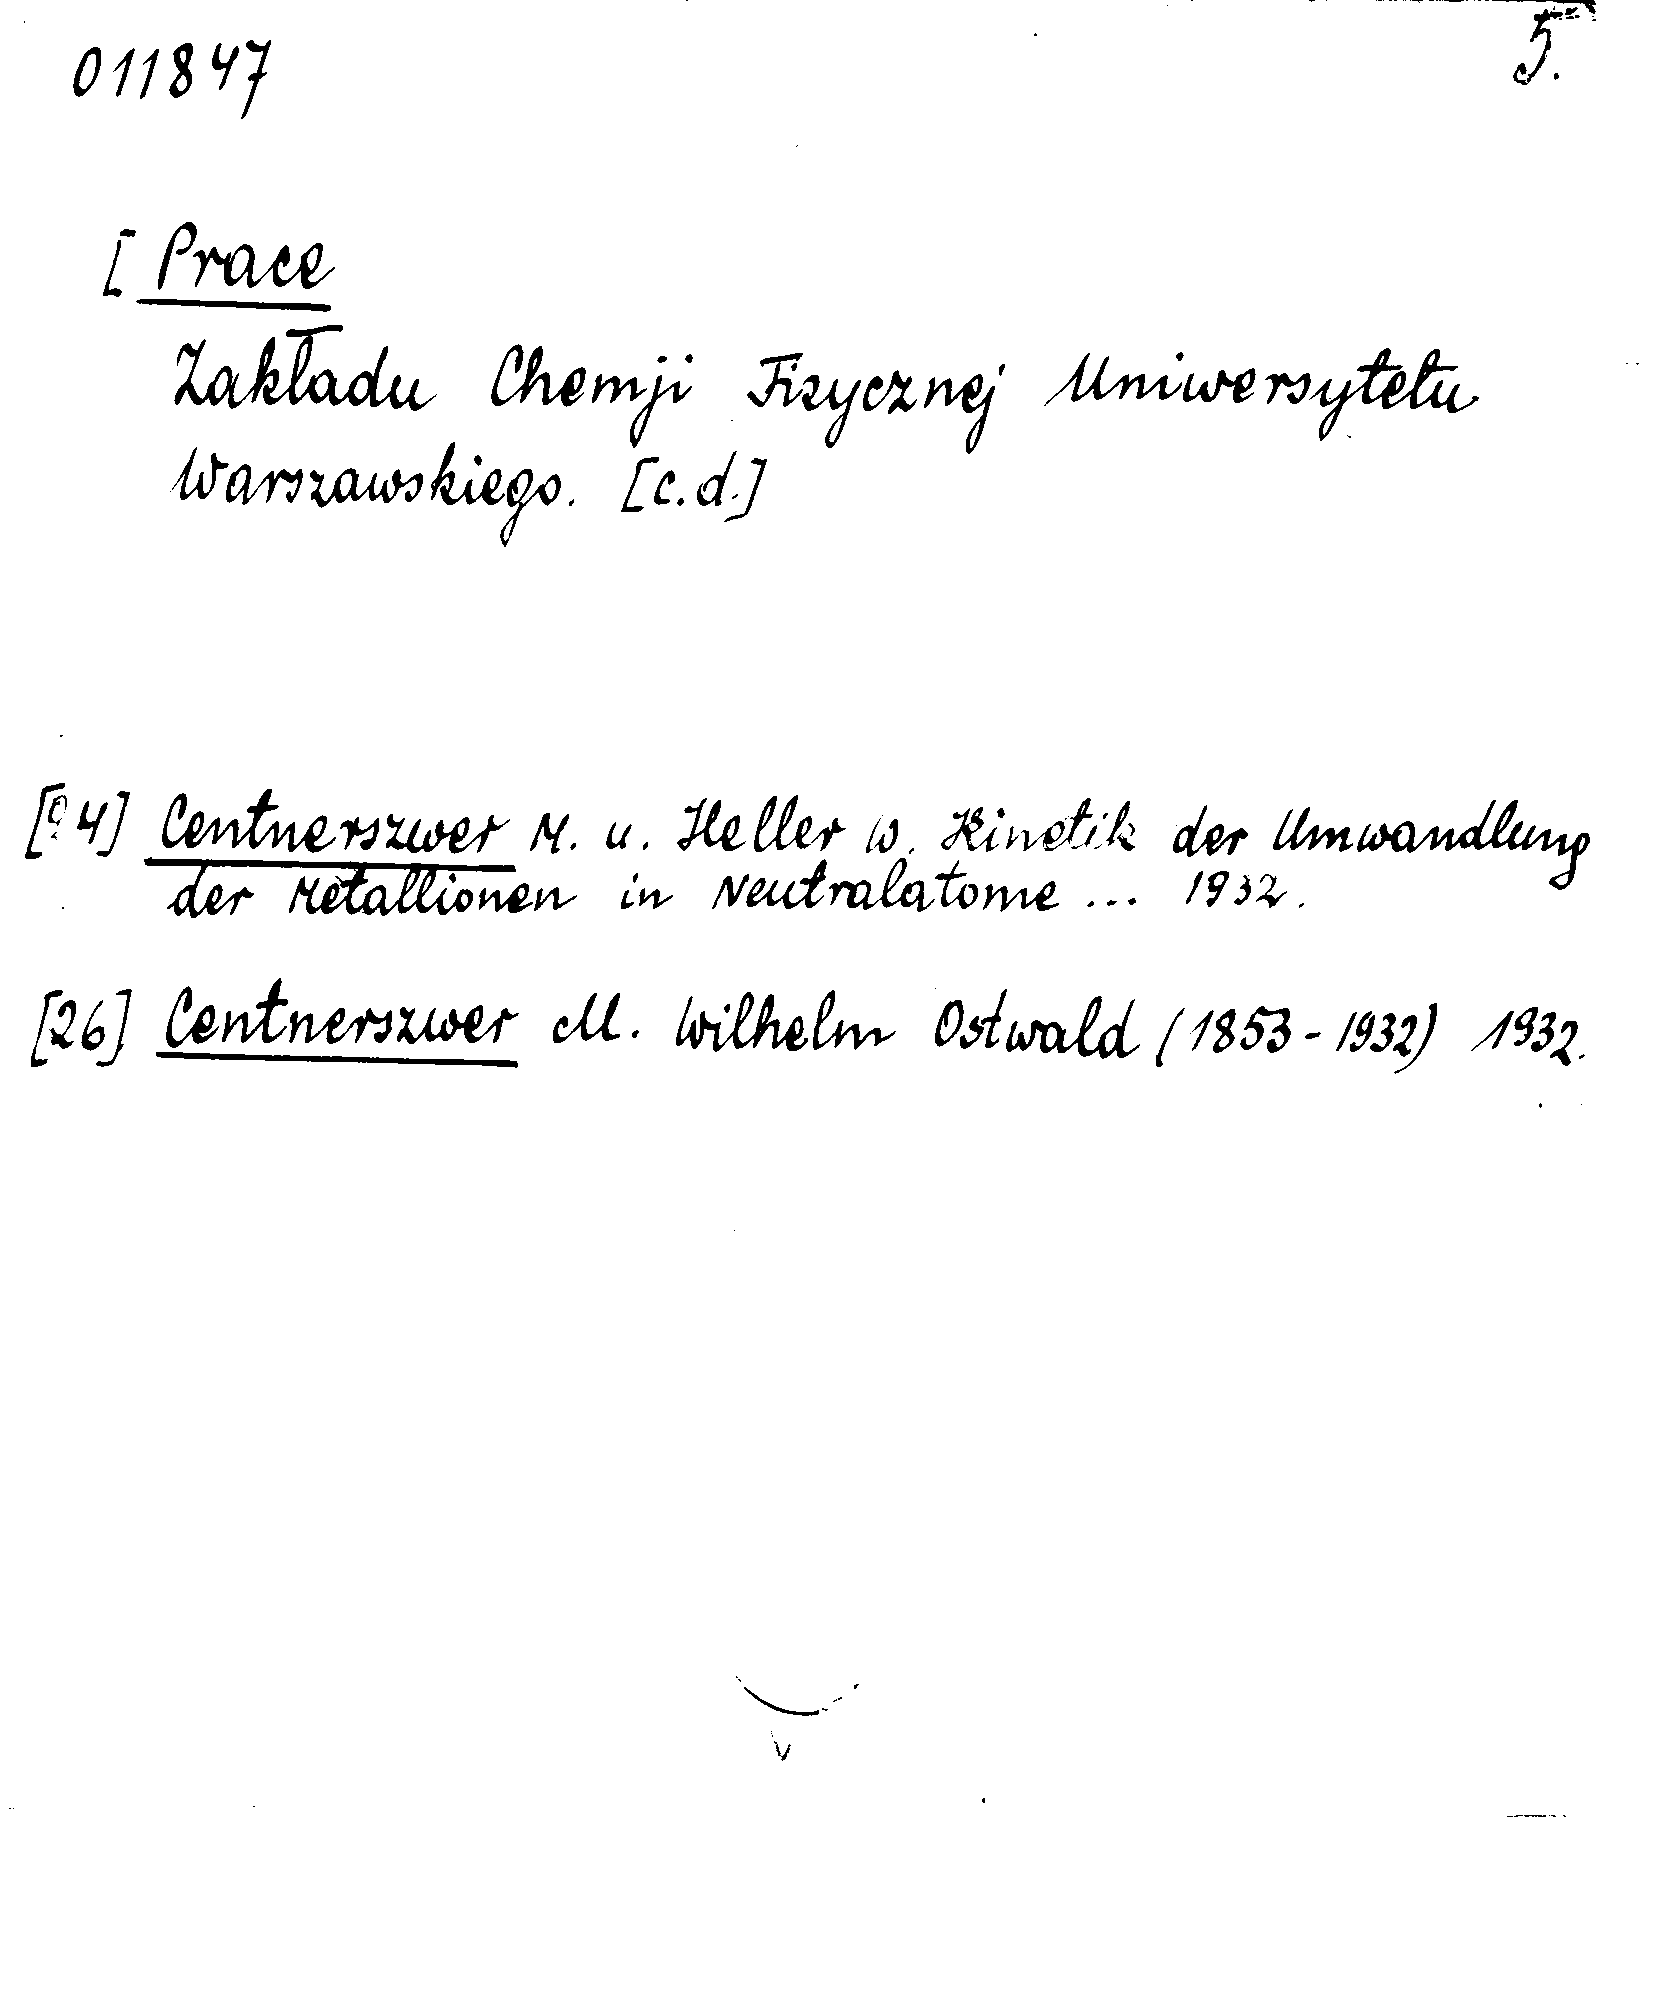 011847
5.
[ Prace
Zakładu Chemji Fizycznej Uniwersytetu
Warszawskiego. [c.d.]
Centnerszwer M. u. Heller W. Kinetik der Umwandlung
der Metallionen in Neutralatome ... 1932.
[26] Centnerszwer M. Wilhelm Ostwald (1853-1932) 1932.